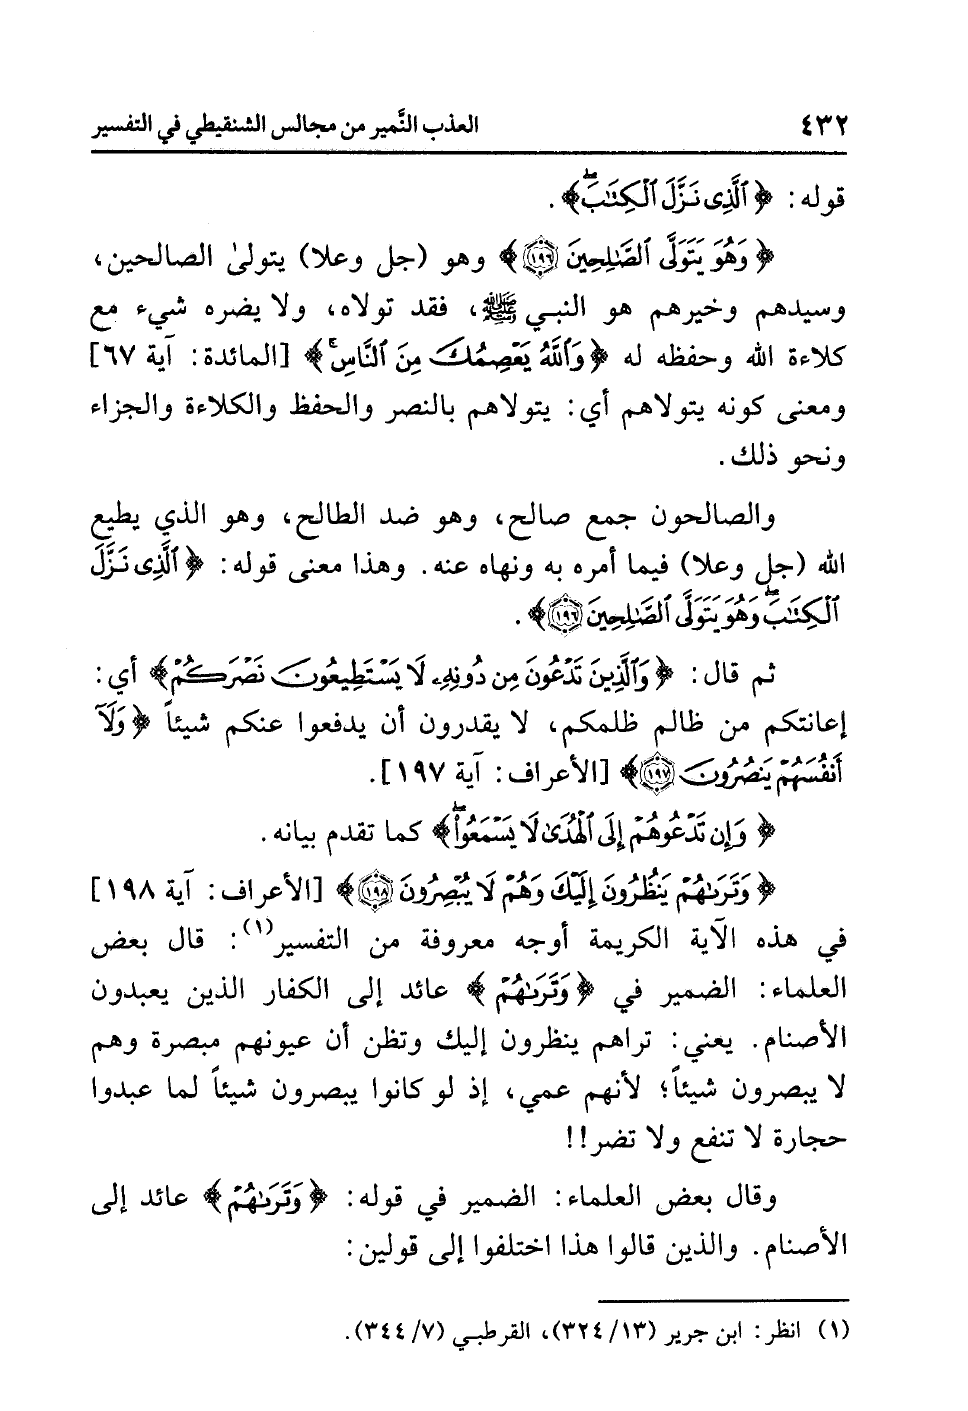 ٤٣٢ العذب النَّمير من مجالس الشنقيطي في التفسير
قوله: ﴿ ٱلَّذِى نَزَّلَ ٱلْكِتَٰبَۖ ﴾.
﴿ وَهُوَ يَتَوَلَّى ٱلصَّٰلِحِينَ ١٩٦ ﴾ وهو (جل وعلا) يتولىٰ الصالحين،
وسيدهم وخيرهم هو النبي ﷺ، فقد تولاه، ولا يضره شيء مع
كلاءة الله وحفظه له ﴿ وَٱللَّهُ يَعْصِمُكَ مِنَ ٱلنَّاسِۚ ﴾ [المائدة: آية ٦٧]
ومعنى كونه يتولاهم أي: يتولاهم بالنصر والحفظ والكلاءة والجزاء
ونحو ذلك.
والصالحون جمع صالح، وهو ضد الطالح، وهو الذي يطيع
الله (جل وعلا) فيما أمره به ونهاه عنه. وهذا معنى قوله: ﴿ ٱلَّذِى نَزَّلَ
ٱلْكِتَٰبَۖ وَهُوَ يَتَوَلَّى ٱلصَّٰلِحِينَ ١٩٦ ﴾.
ثم قال: ﴿ وَٱلَّذِينَ تَدْعُونَ مِن دُونِهِۦ لَا يَسْتَطِيعُونَ نَصْرَكُمْ ﴾ أي:
إعانتكم من ظالم ظلمكم، لا يقدرون أن يدفعوا عنكم شيئاً ﴿ وَلَآ
أَنفُسَهُمْ يَنصُرُونَ ١٩٧ ﴾ [الأعراف: آية ١٩٧].
﴿ وَإِن تَدْعُوهُمْ إِلَى ٱلْهُدَىٰ لَا يَسْمَعُوا۟ۖ ﴾ كما تقدم بيانه.
﴿ وَتَرَىٰهُمْ يَنظُرُونَ إِلَيْكَ وَهُمْ لَا يُبْصِرُونَ ١٩٨ ﴾ [الأعراف: آية ١٩٨]
في هذه الآية الكريمة أوجه معروفة من التفسير(١): قال بعض
العلماء: الضمير في ﴿ وَتَرَىٰهُمْ ﴾ عائد إلى الكفار الذين يعبدون
الأصنام. يعني: تراهم ينظرون إليك وتظن أن عيونهم مبصرة وهم
لا يبصرون شيئاً؛ لأنهم عمي، إذ لو كانوا يبصرون شيئاً لما عبدوا
حجارة لا تنفع ولا تضر!!
وقال بعض العلماء: الضمير في قوله: ﴿ وَتَرَىٰهُمْ ﴾ عائد إلى
الأصنام. والذين قالوا هذا اختلفوا إلى قولين:
(١) انظر: ابن جرير (٣٢٤/١٣)، القرطبي (٣٤٤/٧).